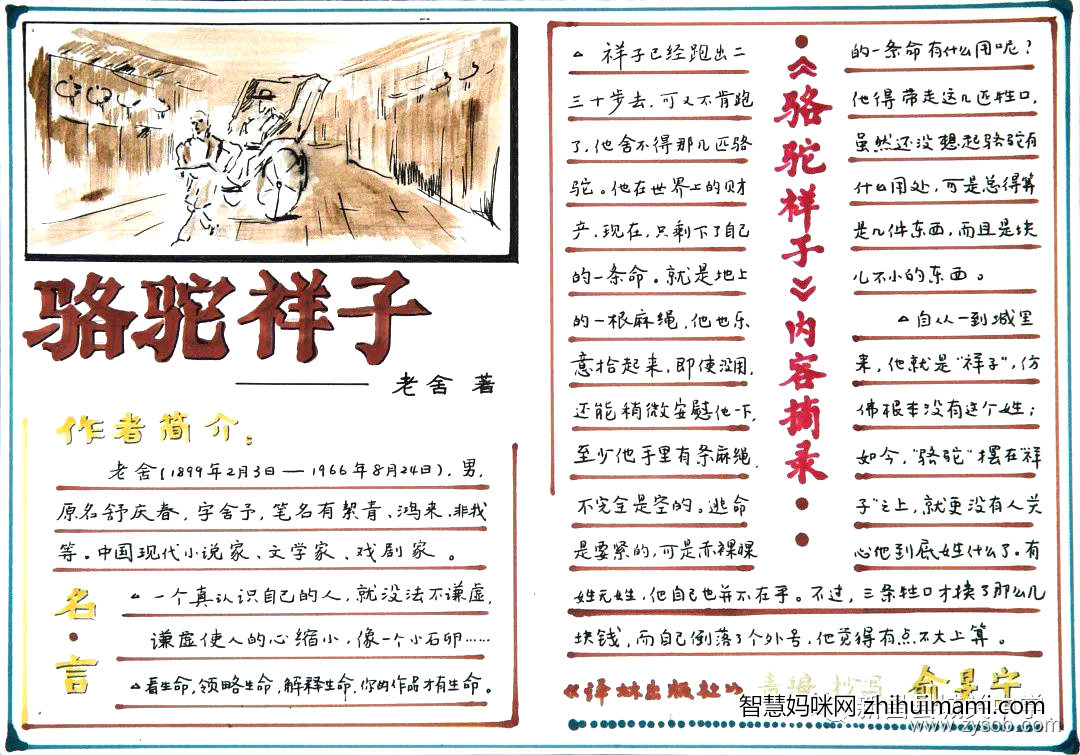 骆驼祥子
老舍 著
作者简介:
老舍(1899年2月3日—1966年8月24日),男,
原名舒庆春,字舍予,笔名有絜青、鸿来、非我
等。中国现代小说家、文学家、戏剧家。
名·言
△一个真认识自己的人,就没法不谦虚,
谦虚使人的心缩小,像一个小石卵……
△看生命,领略生命,解释生命,你的作品才有生命。
《骆驼祥子》内容摘录
△ 祥子已经跑出二
三十步去,可又不肯跑
了,他舍不得那几匹骆
驼。他在世界上的财
产,现在,只剩下了自己
的一条命。就是地上
的一根麻绳,他也乐
意拾起来,即使没用,
还能稍微安慰他一下,
至少他手里有条麻绳,
不完全是空的。逃命
是要紧的,可是赤裸裸
的一条命有什么用呢?
他得带走这几匹牲口,
虽然还没想起骆驼有
什么用处,可是总得算
是几件东西,而且是块
儿不小的东西。
△自从一到城里
来,他就是“祥子”,仿
佛根本没有这个姓;
如今,“骆驼”摆在“祥
子”之上,就更没有人关
心他到底姓什么了。有
姓无姓,他自己也并不在乎。不过,三条牲口才换了那么几
块钱,而自己倒落了个外号,他觉得有点不大上算。
《译林出版社》
智慧妈咪网 zhihuimami.com
www.zysob.com